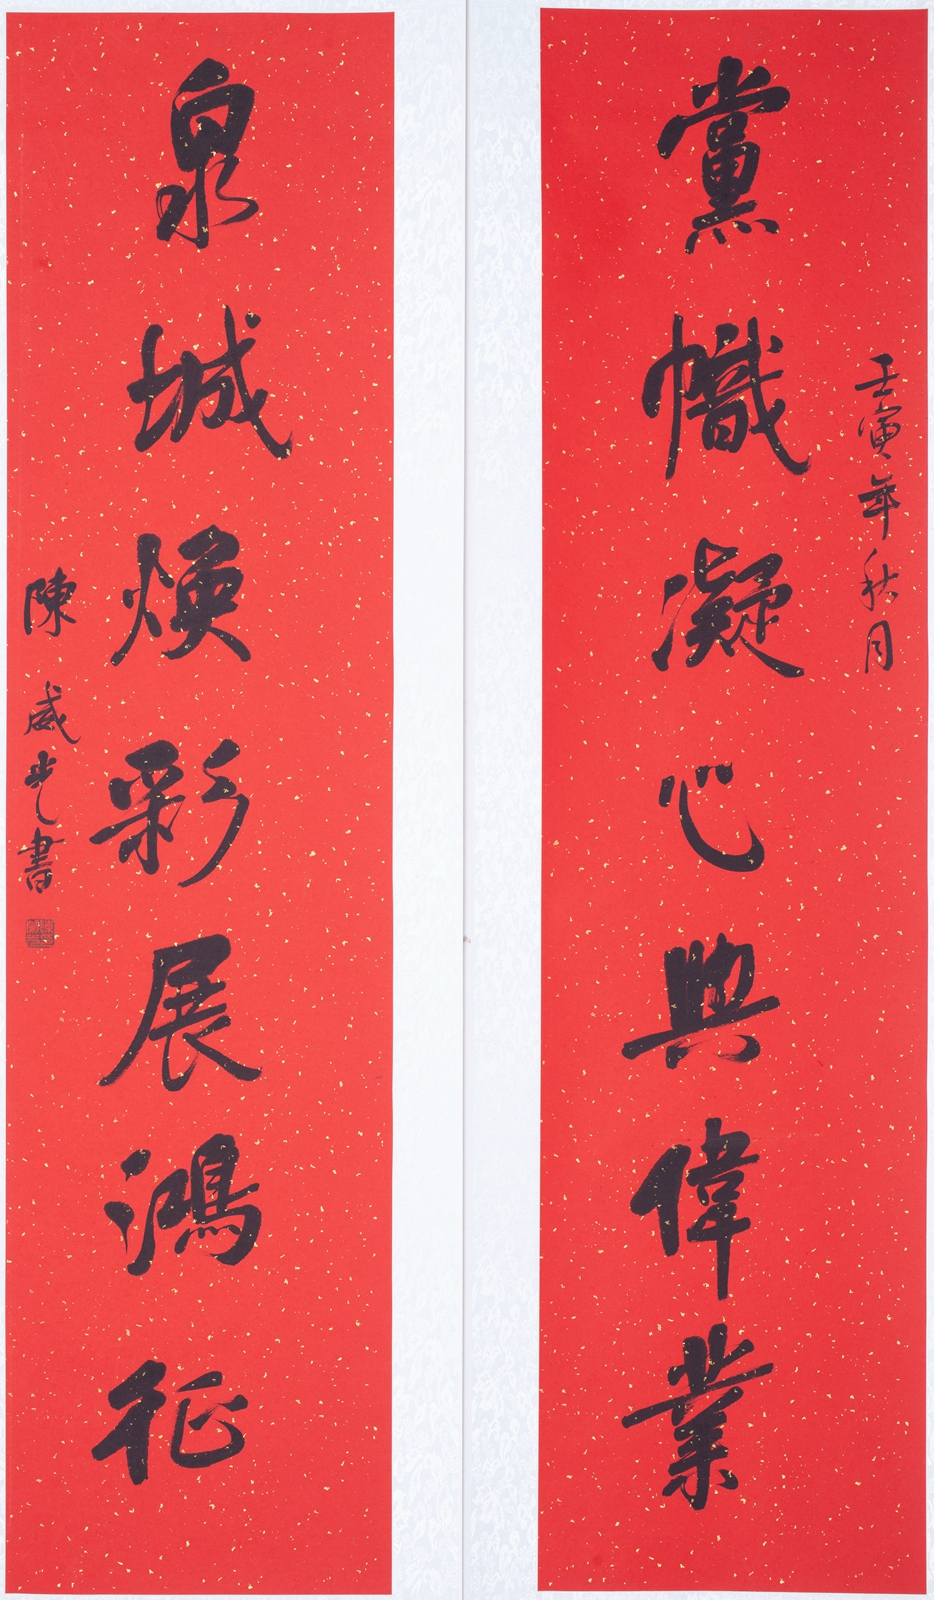 壬寅年秋月
黨幟凝心興偉業
泉城煥彩展鴻征
陳威光書